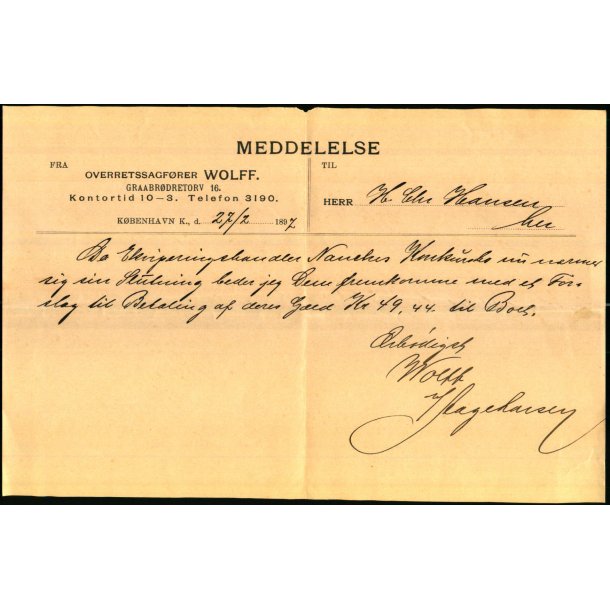 MEDDELELSE
FRA
OVERRETSSAGFØRER WOLFF.
GRAABRØDRETORV 16.
Kontortid 10–3. Telefon 3190.
KØBENHAVN K., d. 27/2 1897
TIL
HERR H. Chr Hansen
her
Da Ekviperingshandler Nanches Konkursbo nu nærmer
sig sin Slutning beder jeg Dem fremkomme med et For-
slag til Betaling af deres Gæld Kr 49,44 til Boet.
Ærbødigst
Wolff